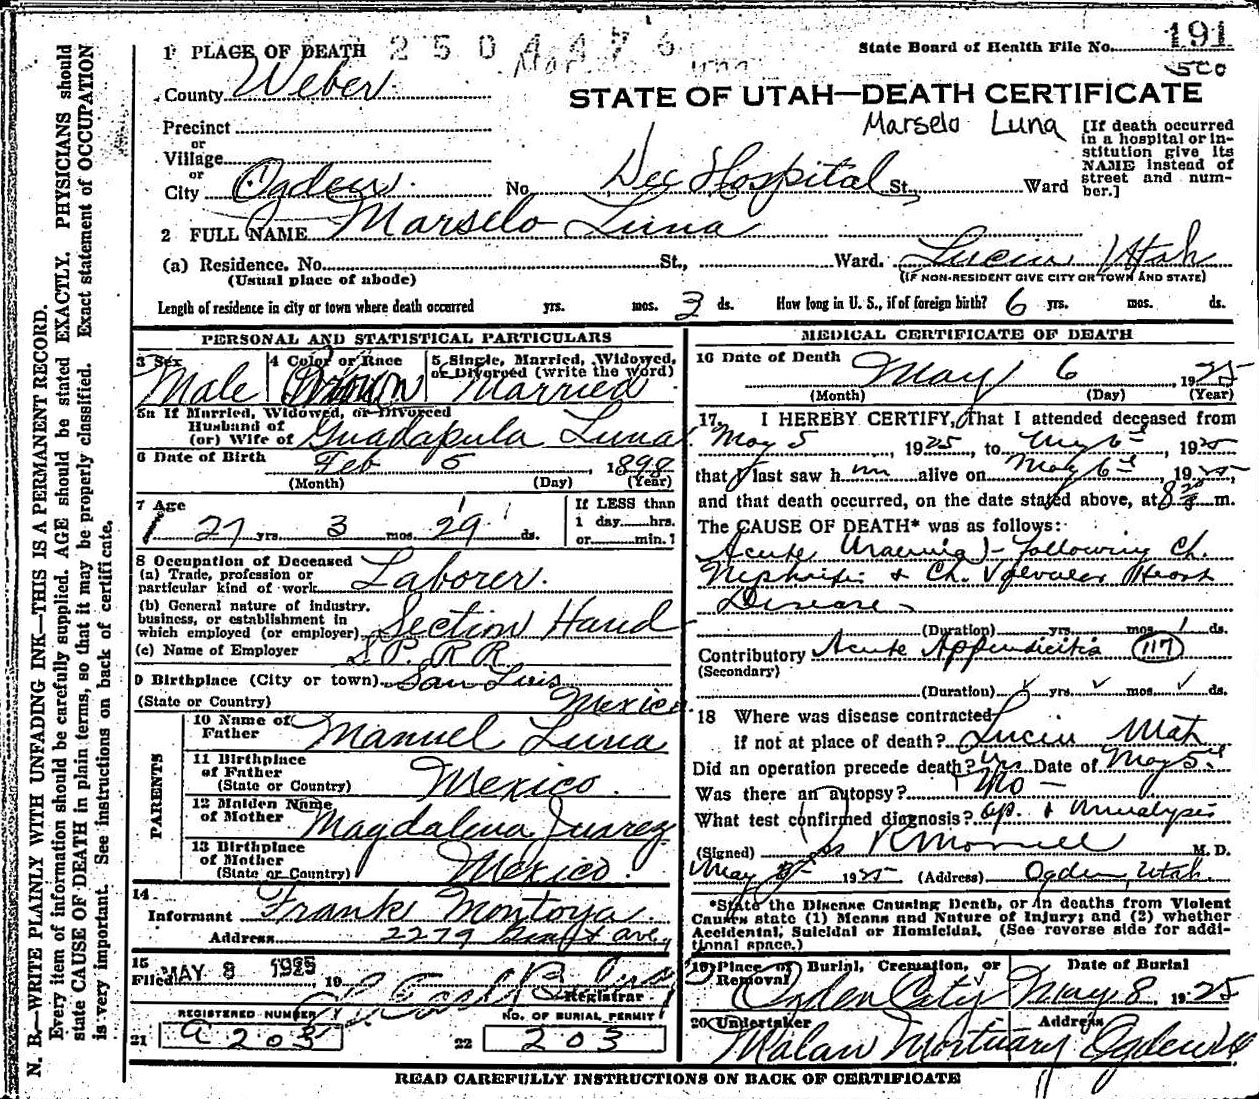 1 PLACE OF DEATH 2504476
State Board of Health File No. 191
500
County Weber
STATE OF UTAH—DEATH CERTIFICATE
Marselo Luna
Precinct
or
Village
or
City Ogden No. Dee Hospital St., Ward
[If death occurred in a hospital or institution give its NAME instead of street and number.]
2 FULL NAME Marselo Luna
(a) Residence. No. St., Ward. Lucin Utah
(Usual place of abode) (IF NON-RESIDENT GIVE CITY OR TOWN AND STATE)
Length of residence in city or town where death occurred yrs. mos. 3 ds. How long in U. S., if of foreign birth? 6 yrs. mos. ds.
PERSONAL AND STATISTICAL PARTICULARS
3 Sex Male
4 Color or Race Brown
5 Single, Married, Widowed, or Divorced (write the word) Married
5a If Married, Widowed, or Divorced
Husband of
(or) Wife of Guadapula Luna
6 Date of Birth Feb 5, 1898
(Month) (Day) (Year)
7 Age 27 yrs. 3 mos. 29 ds.
If LESS than
1 day......hrs.
or......min.?
8 Occupation of Deceased
(a) Trade, profession or
particular kind of work Laborer.
(b) General nature of industry,
business, or establishment in
which employed (or employer) Section Hand
(c) Name of Employer S.P. R R
9 Birthplace (City or town) San Luis
(State or Country) Mexico
PARENTS
10 Name of
Father Manuel Luna
11 Birthplace
of Father
(State or Country) Mexico
12 Maiden Name
of Mother Magdalena Juarez
13 Birthplace
of Mother
(State or Country) Mexico.
14
Informant Frank Montoya
Address 2279 ave,
15
Filed MAY 8 1925, 19
Registrar
REGISTERED NUMBER
21 a 203
NO. OF BURIAL PERMIT
22 203
MEDICAL CERTIFICATE OF DEATH
16 Date of Death May 6, 1925
(Month) (Day) (Year)
17 I HEREBY CERTIFY, That I attended deceased from
May 5, 1925, to May 6th, 1925
that I last saw him alive on May 6th, 1925,
and that death occurred, on the date stated above, at 8 m.
The CAUSE OF DEATH* was as follows:
Acute Uraemia - following Ch.
Nephritis & Ch. Valvular Heart
Disease
(Duration) yrs. mos. 1 ds.
Contributory Acute Appendicitis (117)
(Secondary)
(Duration) yrs. mos. ds.
18 Where was disease contracted
if not at place of death? Lucin Utah
Did an operation precede death? Yes Date of May 5
Was there an autopsy? No -
What test confirmed diagnosis? op. & Urinalysis
(Signed) Morrell M. D.
May 1925 (Address) Ogden, Utah.
*State the Disease Causing Death, or in deaths from Violent
Causes state (1) Means and Nature of Injury; and (2) whether
Accidental, Suicidal or Homicidal. (See reverse side for addi-
tional space.)
19 Place of Burial, Cremation, or Removal Ogden City
Date of Burial May 8, 1925
20 Undertaker Malan Mortuary
Address Ogden
READ CAREFULLY INSTRUCTIONS ON BACK OF CERTIFICATE
N. B.—WRITE PLAINLY WITH UNFADING INK—THIS IS A PERMANENT RECORD.
Every item of information should be carefully supplied. AGE should be stated EXACTLY. PHYSICIANS should
state CAUSE OF DEATH in plain terms, so that it may be properly classified. Exact statement of OCCUPATION
is very important. See instructions on back of certificate.